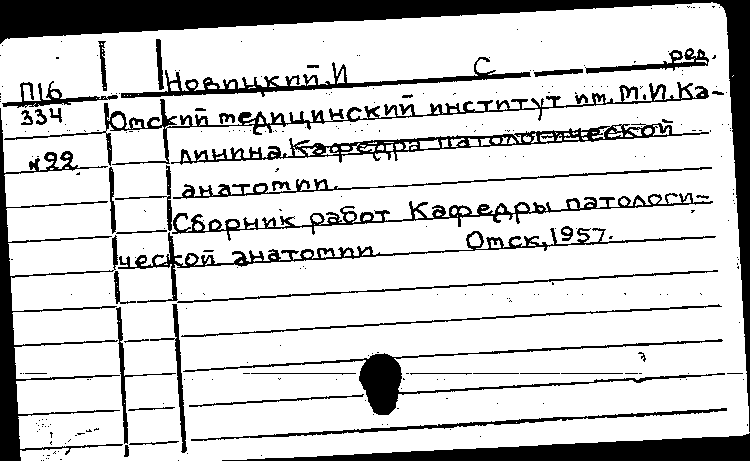 Новицкий, И С ред.
П16
334
Омский медицинский институт им. М.И. Ка-
N22 линина. Кафедра патологической
анатомии.
Сборник работ Кафедры патологи-
ческой анатомии. Омск, 1957.